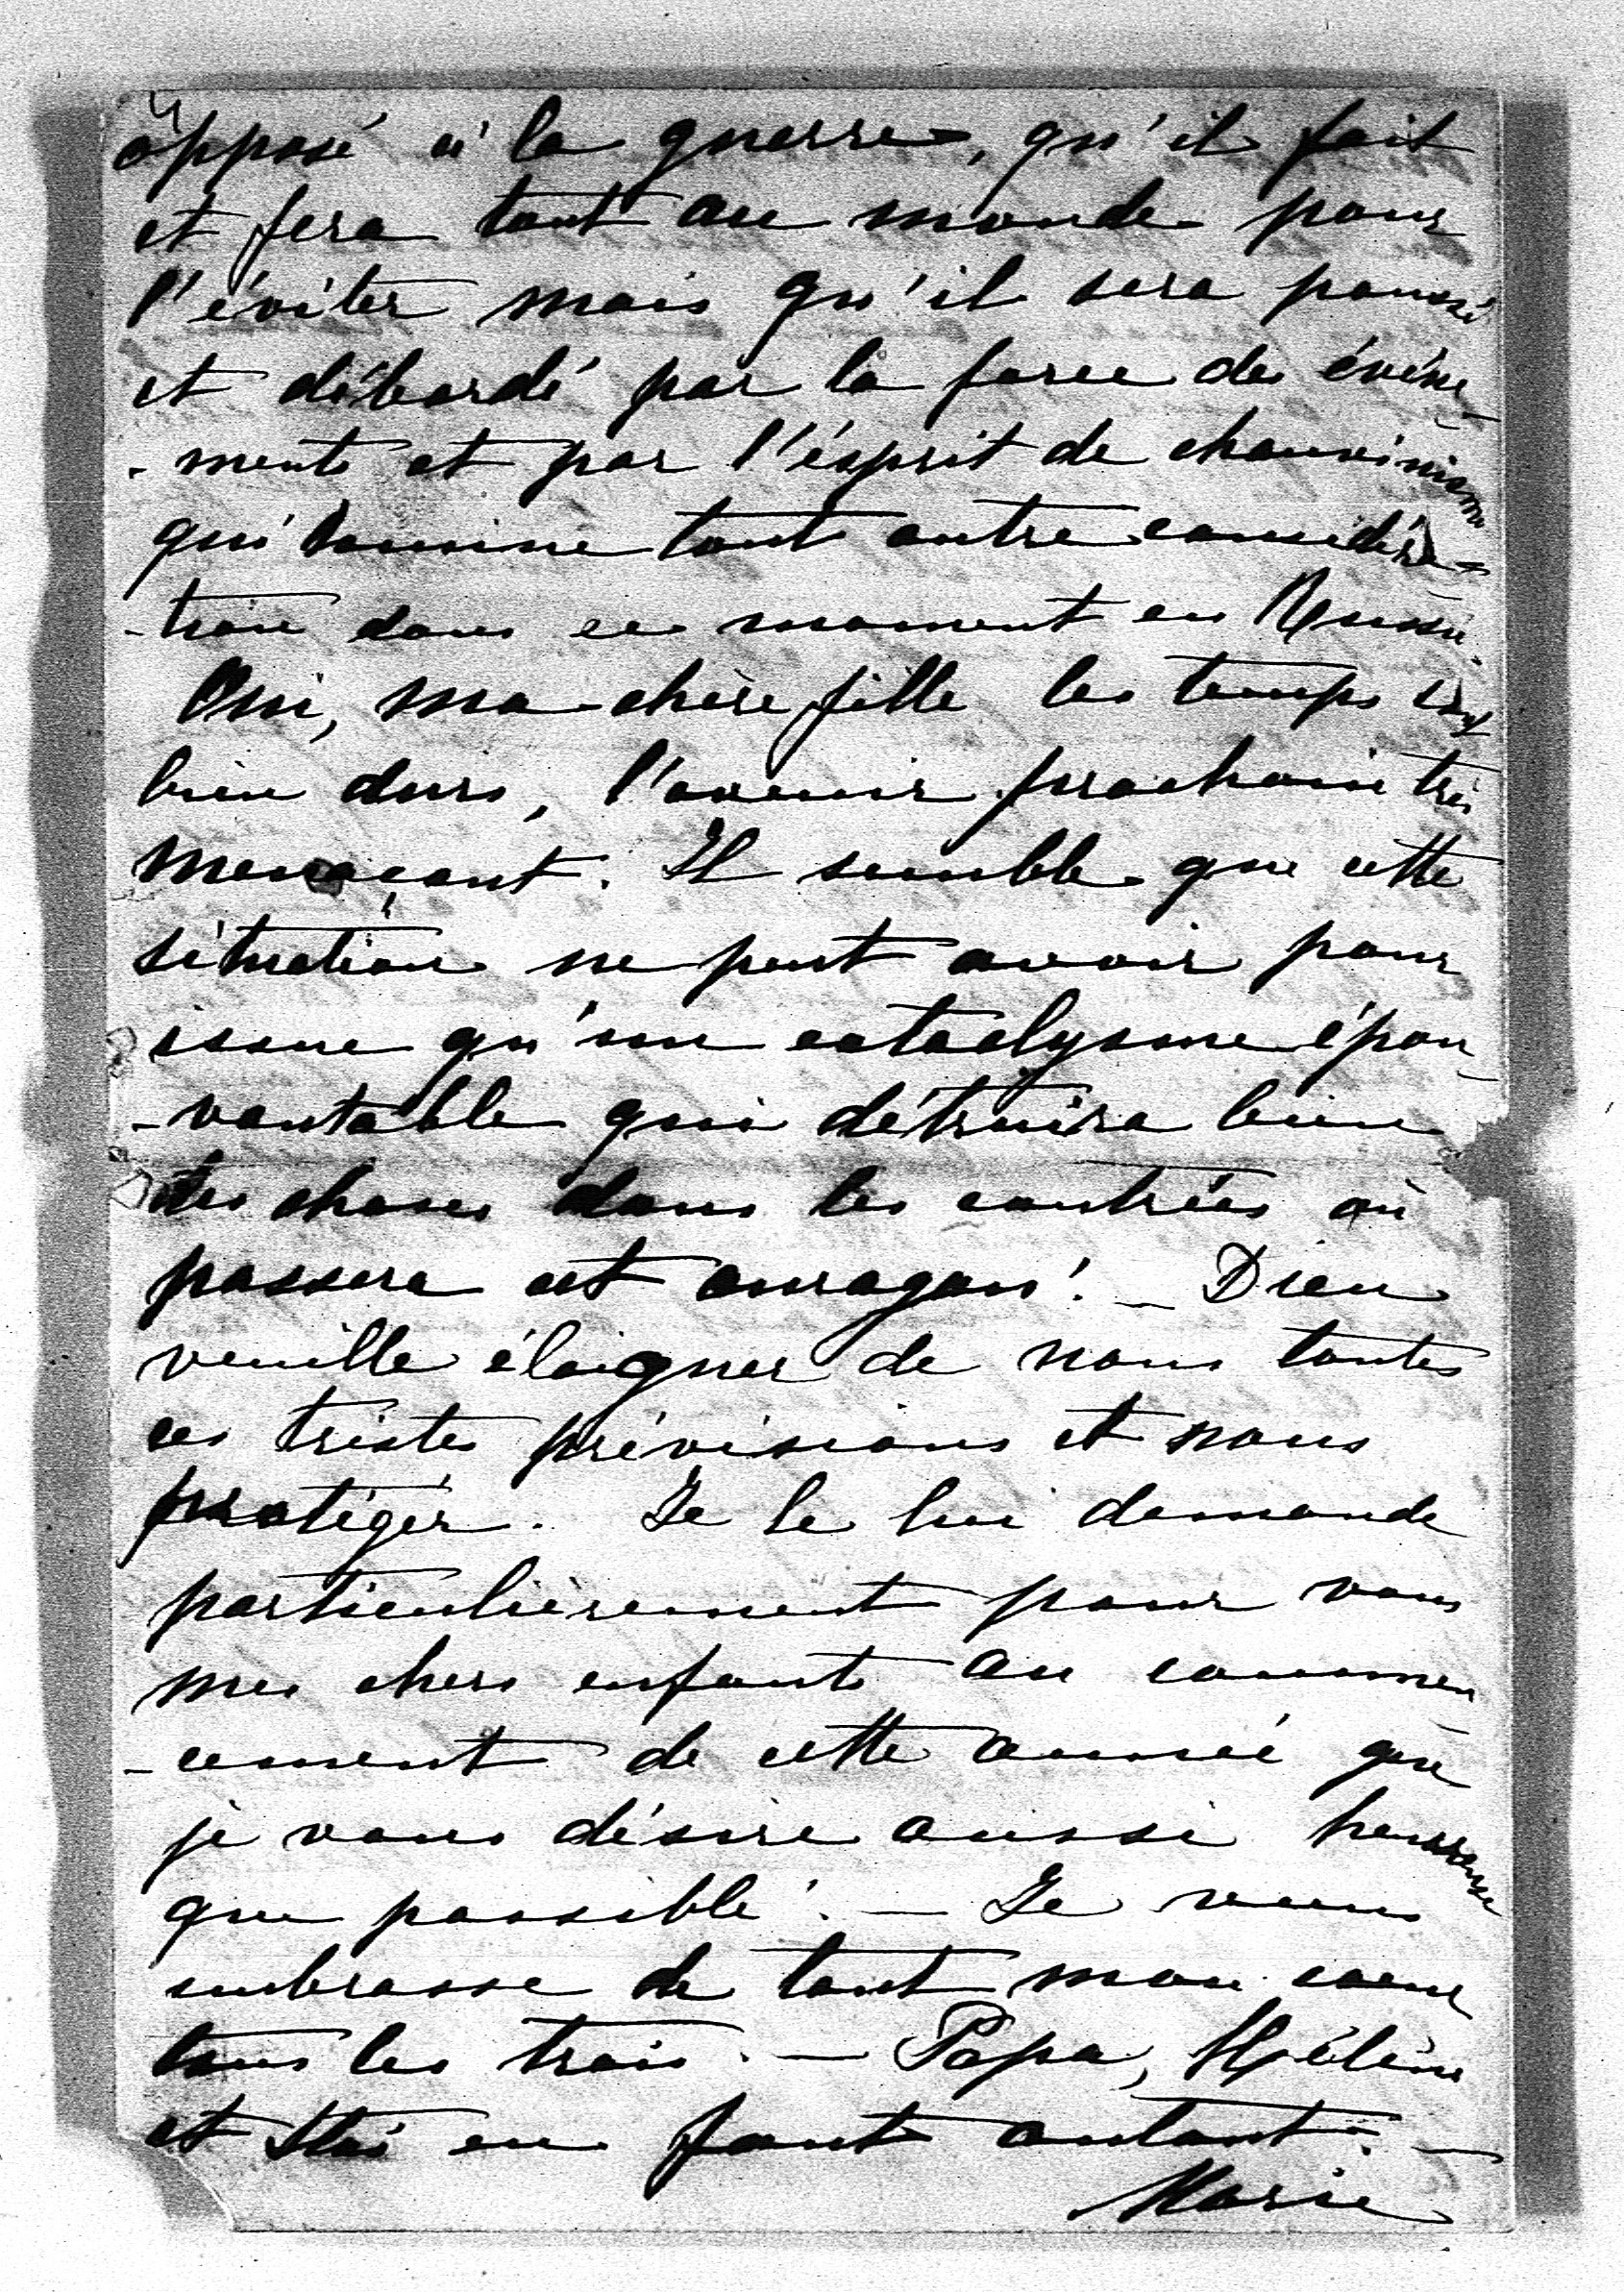 opposé à la guerre, qu'il fait
et fera tout au monde pour
l'éviter mais qu'il sera poussé
et débordé par la force des événe-
-ments et par l'ésprit de chauvinisme
qui domine tout autre considéra-
-tion dans ce moment en Russie.
Oui, ma chère fille les temps sont
bien durs, l'avenir prochain très
menaçant. Il semble que cette
situation ne peut avoir pour
issue qu'un cataclysme épou-
-vantable qui détruira bien
des choses dans les contrées où
passera cet ouragan! — Dieu
veuille éloigner de nous toutes
ces tristes prévisions et nous
protéger. Je le lui demande
particulièrement pour vous
mes chers enfants au commen-
-cement de cette année que
je vous désire aussi heureuse
que possible. — Je vous
embrasse de tout mon coeur
tous les trois. — Papa, Hélène
et en font autant. —
Marie